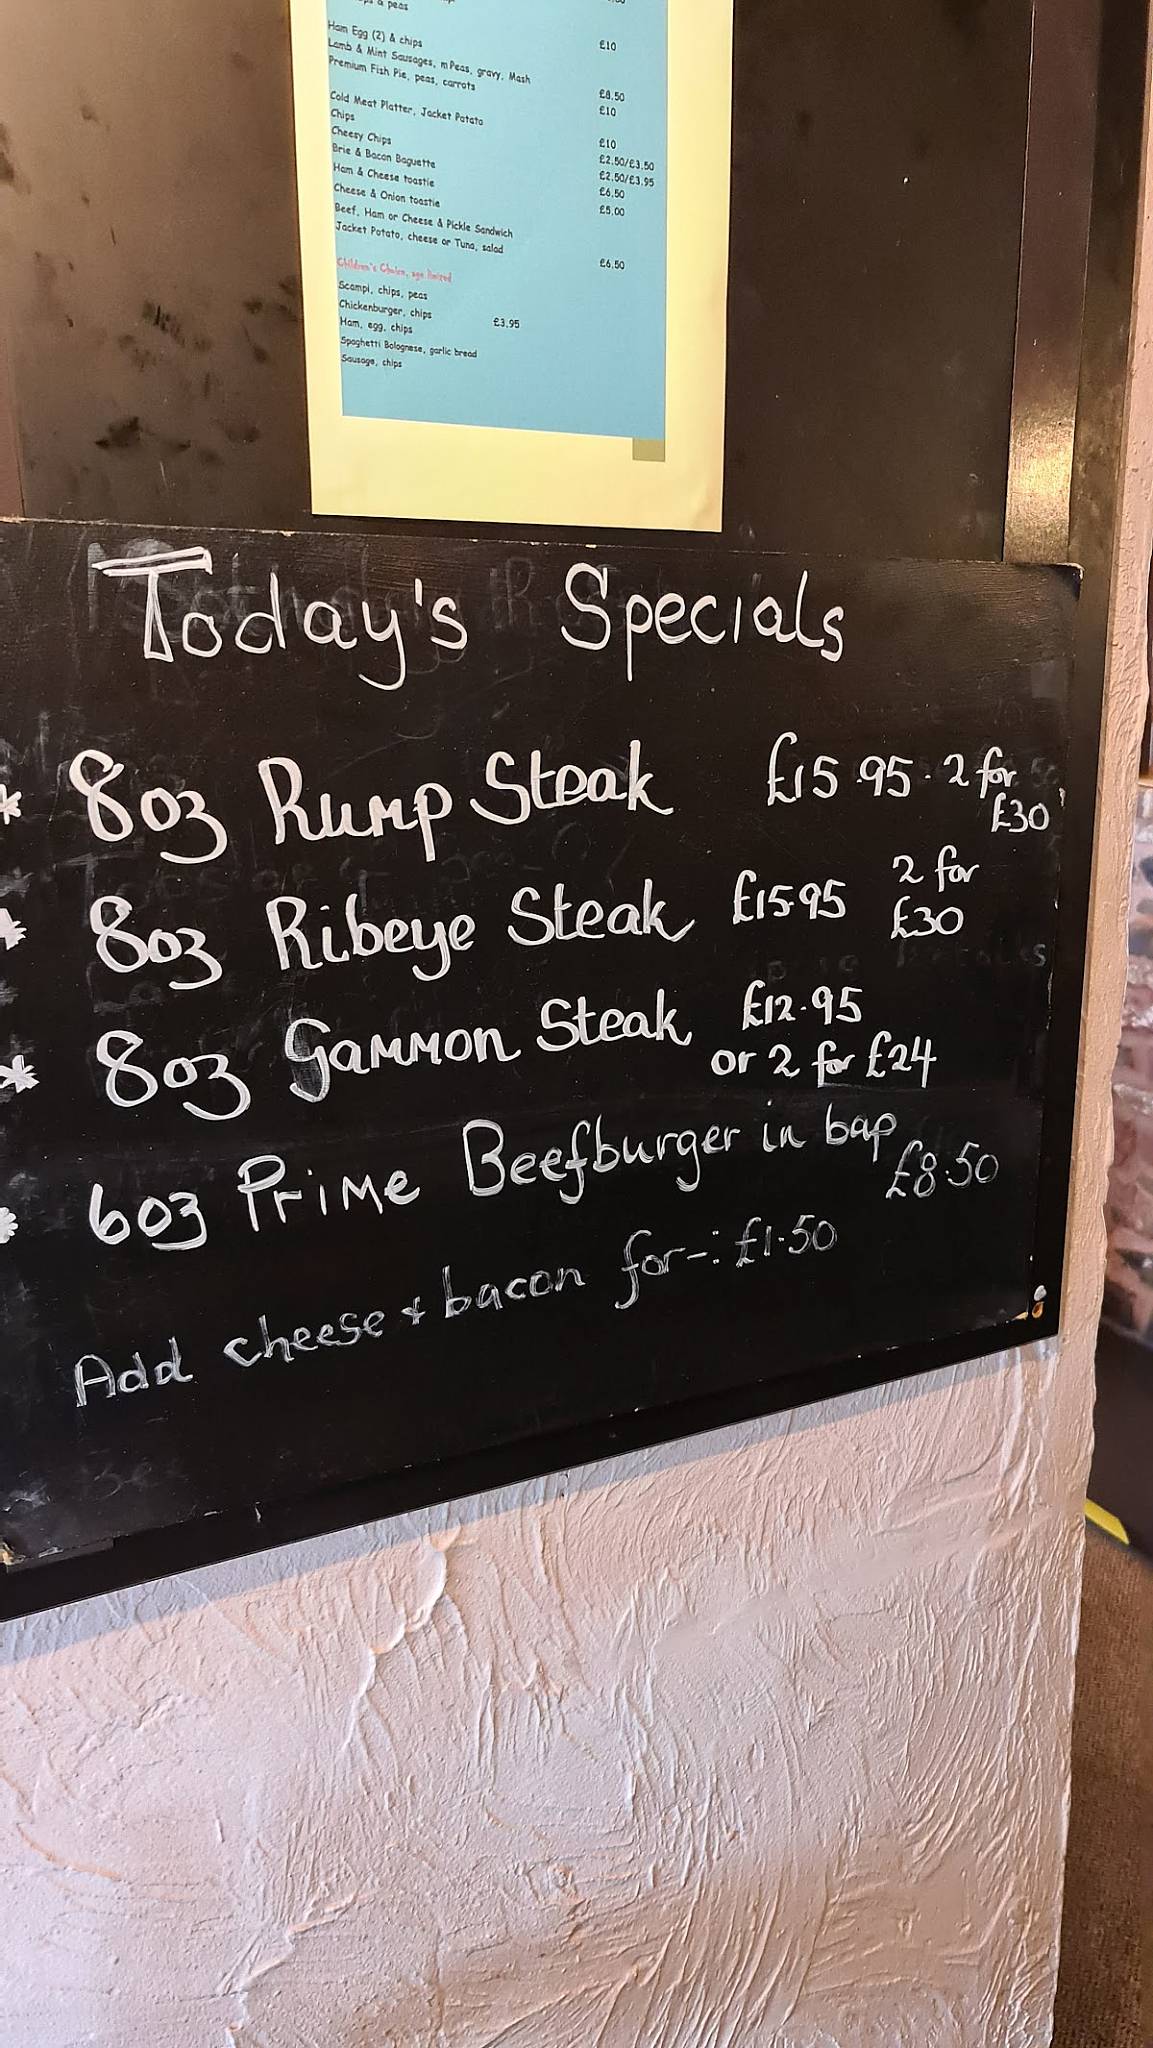 & peas
Ham Egg (2) & chips £10
Lamb & Mint Sausages, mPeas, gravy, Mash £8.50
Premium Fish Pie, peas, carrots £10
Cold Meat Platter, Jacket Potato £10
Chips £2.50/£3.50
Cheesy Chips £2.50/£3.95
Brie & Bacon Baguette £6.50
Ham & Cheese toastie £5.00
Cheese & Onion toastie
Beef, Ham or Cheese & Pickle Sandwich
Jacket Potato, cheese or Tuna, salad £6.50
Children's Choice, age limited
Scampi, chips, peas
Chickenburger, chips £3.95
Ham, egg, chips
Spaghetti Bolognese, garlic bread
Sausage, chips
Today's Specials
* 8oz Rump Steak £15.95. 2 for
£30
* 8oz Ribeye Steak £15.95 2 for
£30
* 8oz Gammon Steak £12.95
or 2 for £24
* 6oz Prime Beefburger in bap
£8.50
Add cheese + bacon for-: £1.50